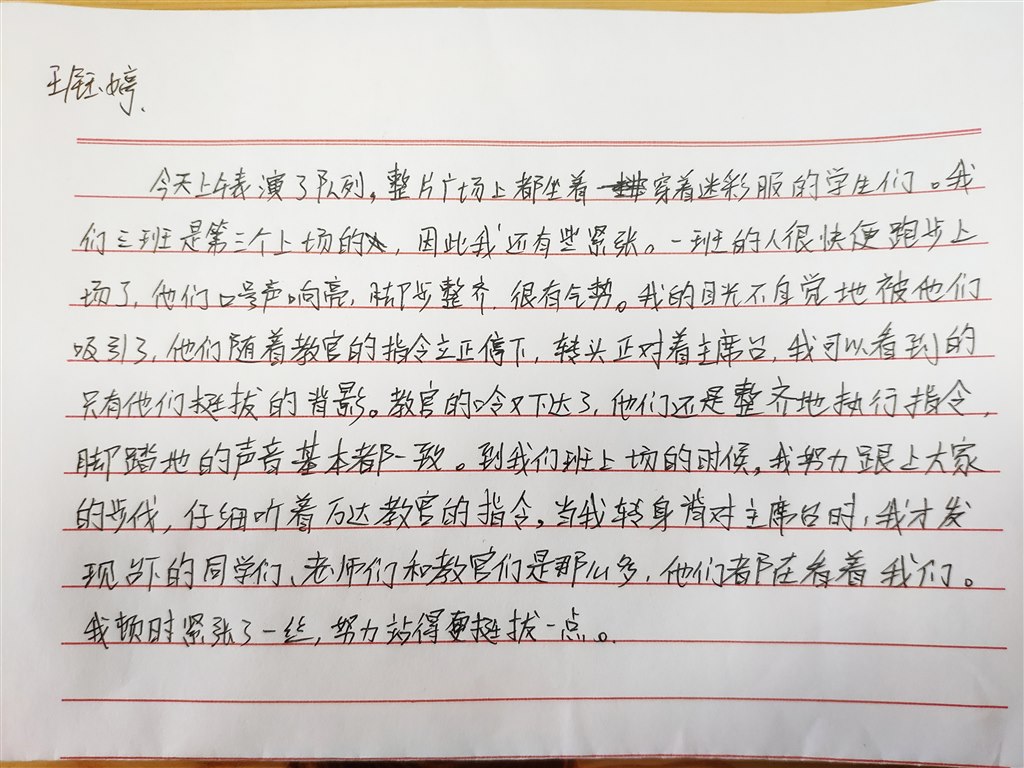 王钰婷.
今天上午表演了队列，整片广场上都坐着穿着迷彩服的学生们。我
们三班是第三个上场的，因此我还有些紧张。一班的人很快便跑步上
场了，他们口号声响亮，脚步整齐，很有气势。我的目光不自觉地被他们
吸引了，他们随着教官的指令立正停下，转头正对着主席台，我可以看到的
只有他们挺拔的背影。教官的令又下达了，他们还是整齐地执行指令，
脚踏地的声音基本都一致。到我们班上场的时候，我努力跟上大家
的步伐，仔细听着万达教官的指令。当我转身背对主席台时，我才发
现台下的同学们、老师们和教官们是那么多，他们都在看着我们。
我顿时紧张了一丝，努力站得更挺拔一点。